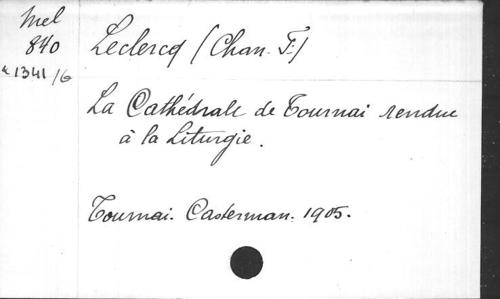 Mel
840
Leclercq (Chan. F.)
1341/6
La Cathédrale de Tournai rendue
à la Liturgie.
Tournai. Casterman. 1905.